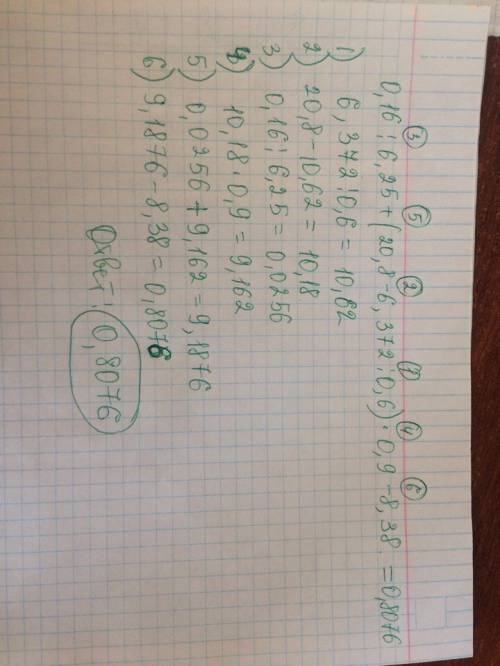 ③ ⑤ ② ① ④ ⑥
0,16 : 6,25 + (20,8 - 6,372 : 0,6) · 0,9 - 8,38 = 0,8076
1) 6,372 : 0,6 = 10,62
2) 20,8 - 10,62 = 10,18
3) 0,16 : 6,25 = 0,0256
4) 10,18 · 0,9 = 9,162
5) 0,0256 + 9,162 = 9,1876
6) 9,1876 - 8,38 = 0,8076
Ответ: 0,8076